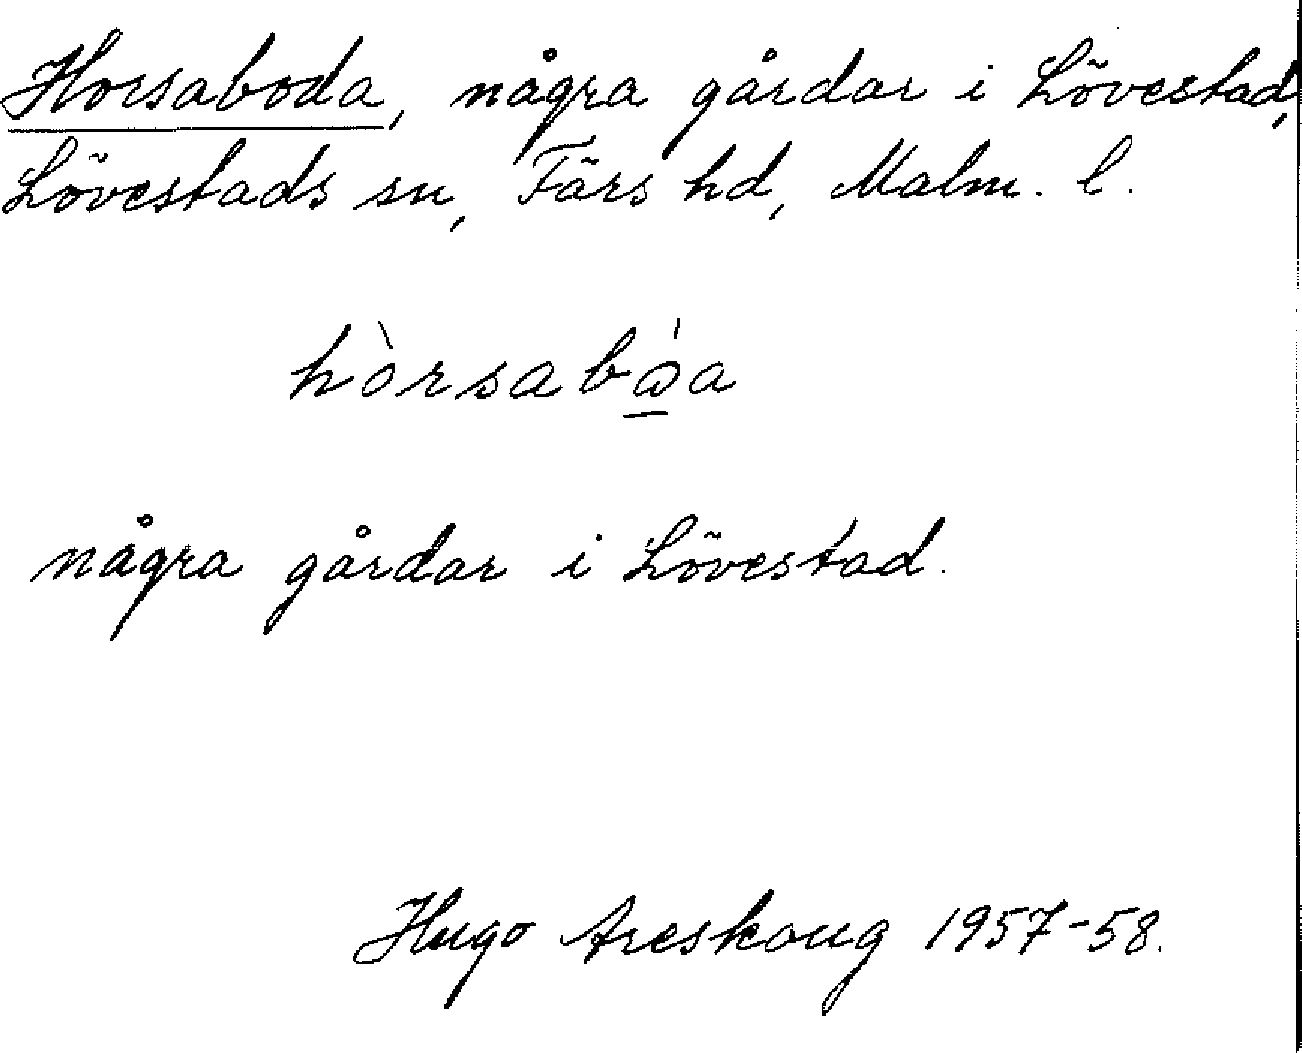 Horsaboda, några gårdar i Lövestad,
Lövestads sn, Färs hd, Malm. l.
hòrsabɷ́a
några gårdar i Lövestad.
Hugo Areskoug 1957-58.